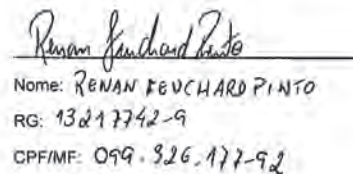 Renan Feuchard Pinto
Nome: RENAN FEUCHARD PINTO
RG: 13217742-9
CPF/MF: 099.926.177-92